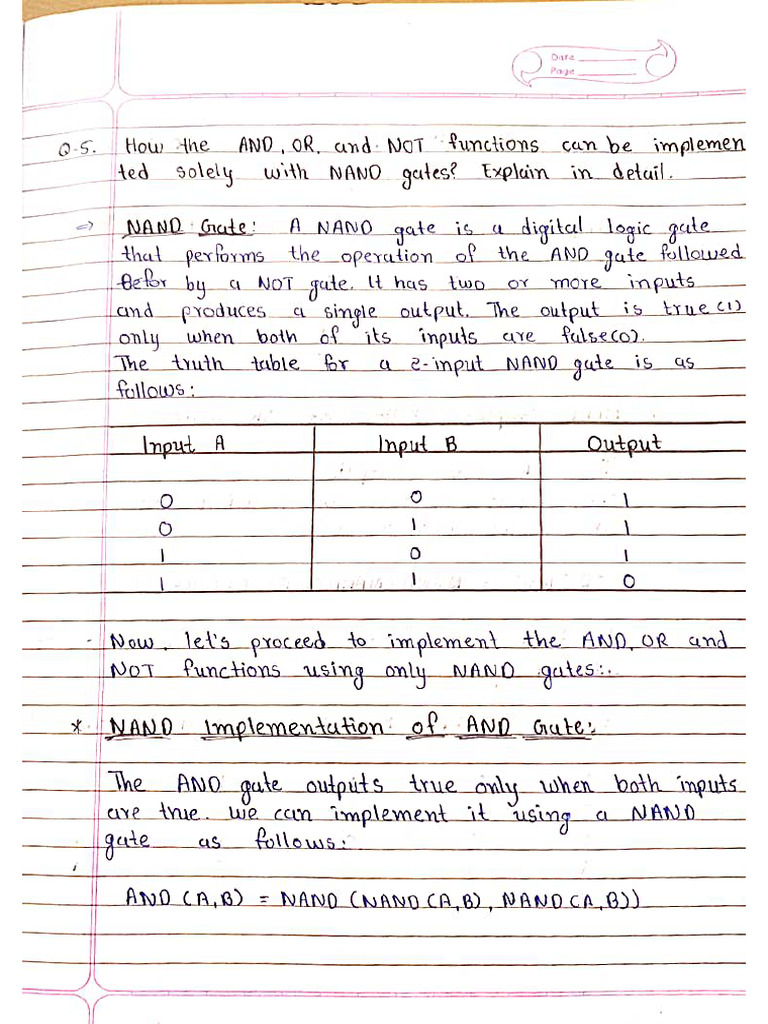 Date
Page
Q.5. How the AND, OR. and NOT functions can be implemen
ted solely with NAND gates? Explain in detail.
=> NAND Gate: A NAND gate is a digital logic gate
that performs the operation of the AND gate followed
by a NOT gate. It has two or more inputs
and produces a single output. The output is true(1)
only when both of its inputs are false(0).
The truth table for a 2-input NAND gate is as
follows:
Input A Input B Output
0 0 1
0 1 1
1 0 1
1 1 0
- Now, let's proceed to implement the AND, OR and
NOT functions using only NAND gates:.
* NAND Implementation of AND Gate:
The AND gate outputs true only when both inputs
are true. we can implement it using a NAND
gate as follows:
AND (A,B) = NAND (NAND (A,B), NAND (A,B))